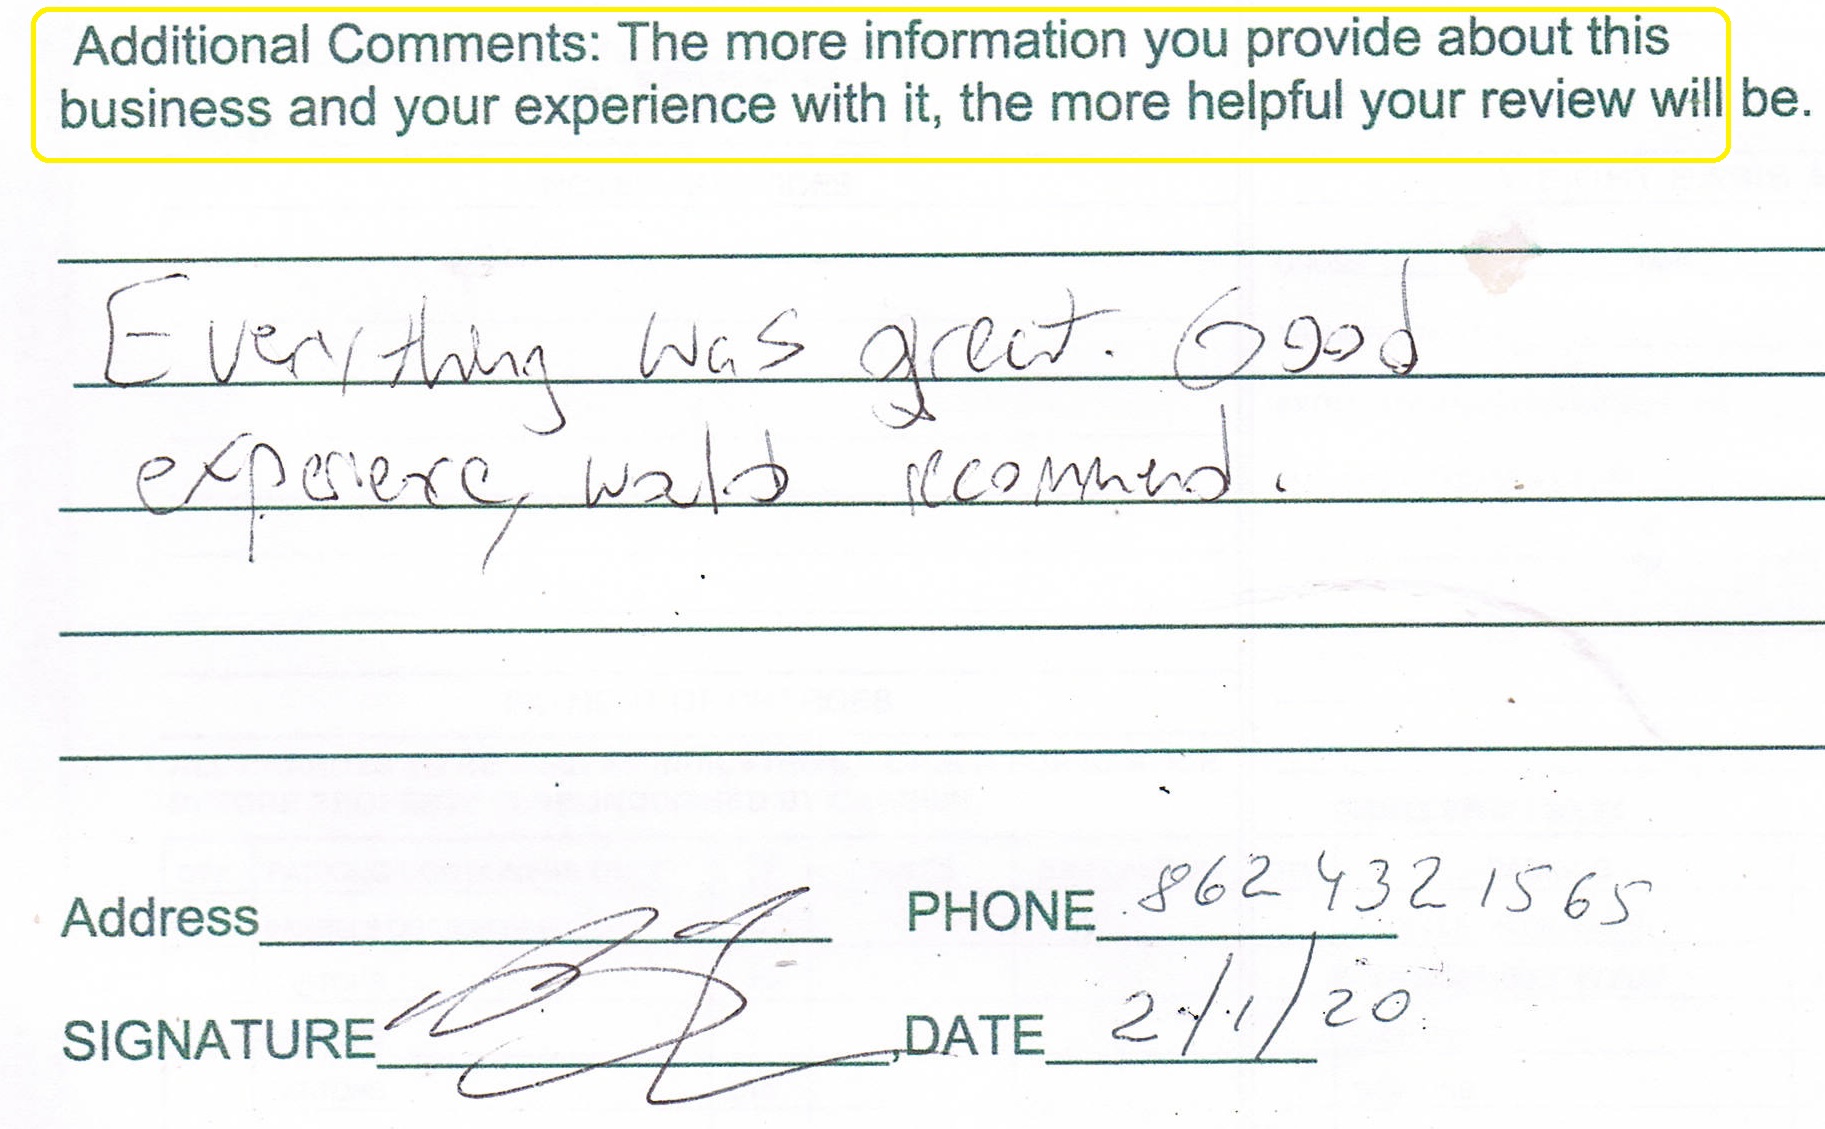 Additional Comments: The more information you provide about this
business and your experience with it, the more helpful your review will be.
Everything was great. Good
experience, would recommend.
Address PHONE 862 432 1565
SIGNATURE DATE 2/1/20